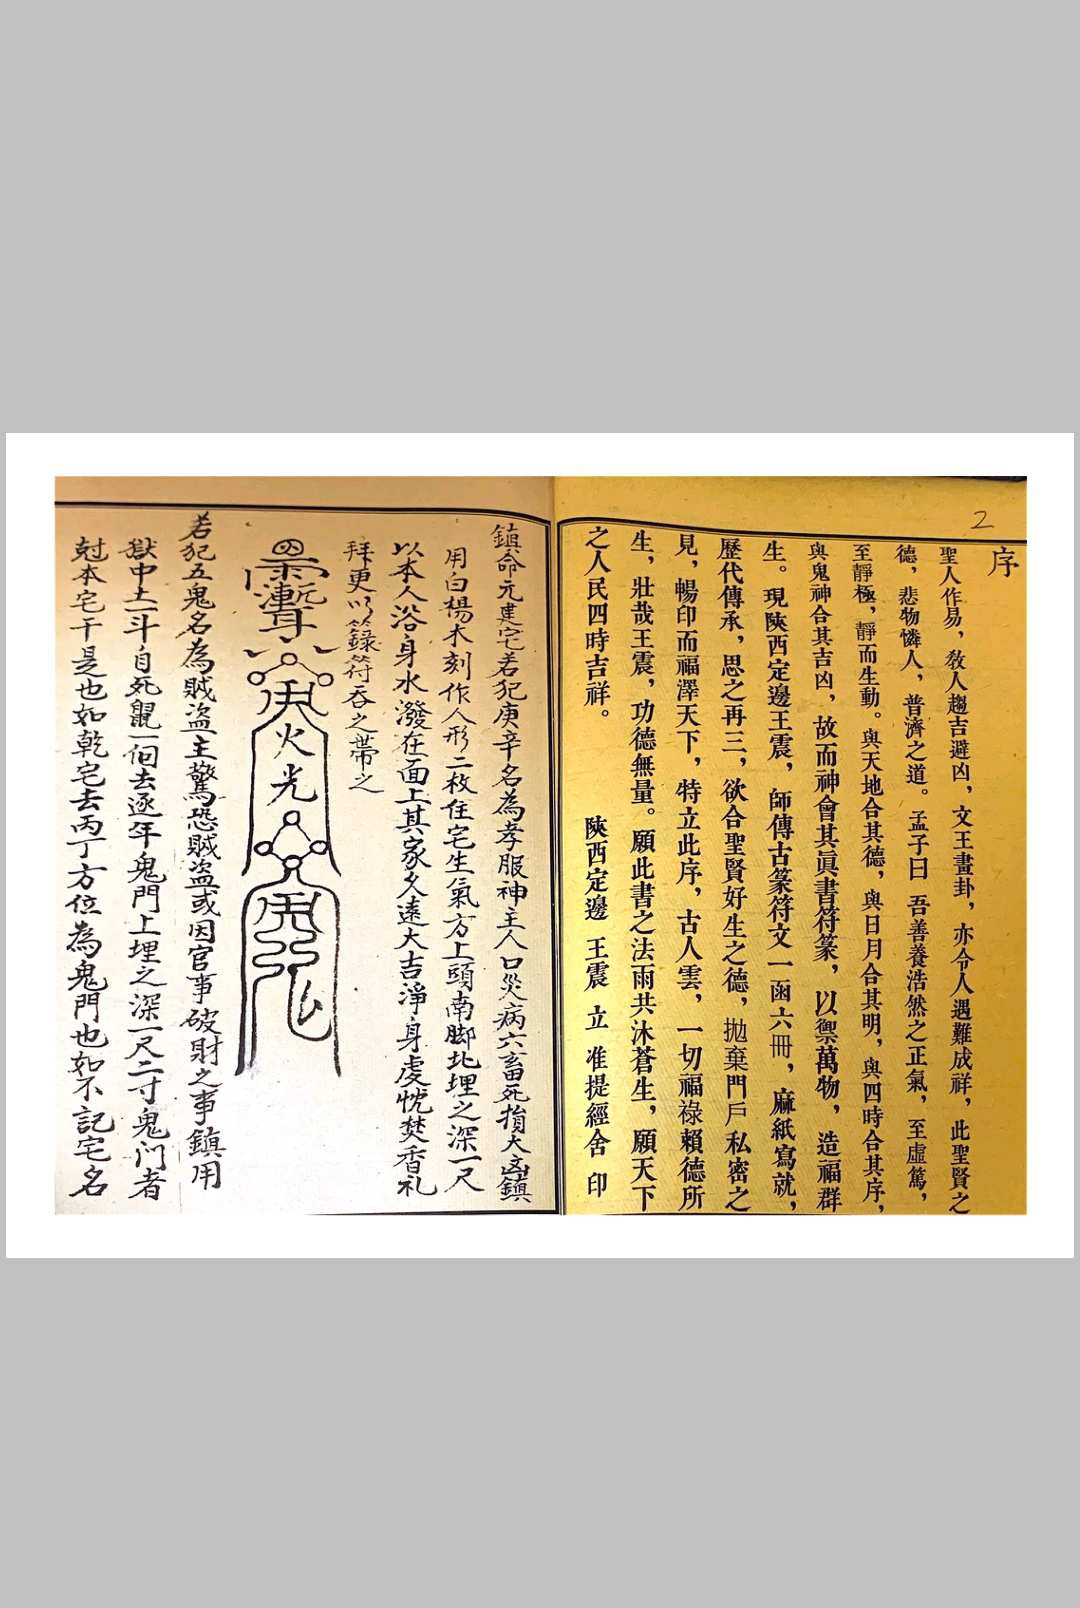 2
序
聖人作易，教人趨吉避凶，文王畫卦，亦令人遇難成祥，此聖賢之
德，悲物憐人，普濟之道。孟子曰 吾善養浩然之正氣，至虛篤，
至靜極，靜而生動。與天地合其德，與日月合其明，與四時合其序，
與鬼神合其吉凶，故而神會其眞書符篆，以禦萬物，造福群
生。現陝西定邊王震，師傳古篆符文一函六冊，麻紙寫就，
歷代傳承，思之再三，欲合聖賢好生之德，拋棄門戶私密之
見，暢印而福澤天下，特立此序，古人雲，一切福祿賴德所
生，壯哉王震，功德無量。願此書之法雨共沐蒼生，願天下
之人民四時吉祥。 陝西定邊 王震 立 准提經舍 印
鎮命元建宅若犯庚辛名為孝服神主人口災病六畜死損大凶鎮
用白楊木刻作人形二枚住宅生氣方上頭南脚北埋之深一尺
以本人浴身水潑在面上其家久遠大吉淨身虔忱焚香礼
拜更以籙符吞之帶之
火光
若犯五鬼名為賊盜主驚恐賊盜或因官事破財之事鎮用
獄中土一斗自死鼠一個去逐年鬼門上埋之深一尺二寸鬼门者
尅本宅干是也如乾宅去丙丁方位為鬼門也如不記宅名